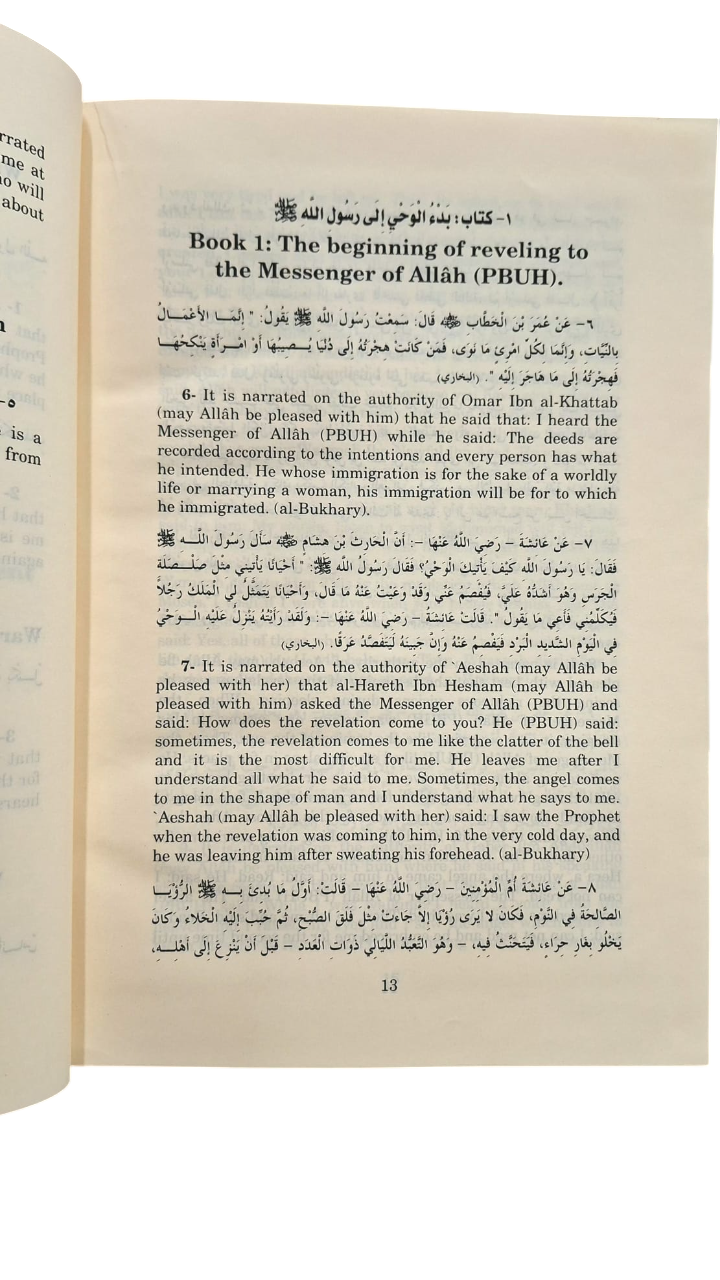 rrated
me at
o will
about
n
٥-
is a
from
١- كتاب: بَدْءُ الْوَحْيِ إِلَى رَسُولِ اللَّهِ ﷺ
Book 1: The beginning of reveling to
the Messenger of Allâh (PBUH).
٦- عَنْ عُمَرَ بْنَ الْخَطَّابِ ﷺ قَالَ: سَمِعْتُ رَسُولَ اللَّهِ ﷺ يَقُولُ: " إِنَّمَا الأَعْمَالُ
بِالنِّيَّاتِ، وَإِنَّمَا لِكُلِّ امْرِئٍ مَا نَوَى، فَمَنْ كَانَتْ هِجْرَتُهُ إِلَى دُنْيَا يُصِيبُهَا أَوْ امْرَأَةٍ يَنْكِحُهَا
فَهِجْرَتُهُ إِلَى مَا هَاجَرَ إِلَيْهِ ". (البخاري)
6- It is narrated on the authority of Omar Ibn al-Khattab
(may Allâh be pleased with him) that he said that: I heard the
Messenger of Allâh (PBUH) while he said: The deeds are
recorded according to the intentions and every person has what
he intended. He whose immigration is for the sake of a worldly
life or marrying a woman, his immigration will be for to which
he immigrated. (al-Bukhary).
٧- عَنْ عَائِشَةَ – رَضِيَ اللَّهُ عَنْهَا –: أَنَّ الْحَارِثَ بْنَ هِشَامٍ ﷺ سَأَلَ رَسُولَ اللَّهِ ﷺ
فَقَالَ: يَا رَسُولَ اللَّهِ كَيْفَ يَأْتِيكَ الْوَحْيُ؟ فَقَالَ رَسُولُ اللَّهِ ﷺ: " أَحْيَانًا يَأْتِينِي مِثْلَ صَلْصَلَةِ
الْجَرَسِ وَهُوَ أَشَدُّهُ عَلَيَّ، فَيُفْصَمُ عَنِّي وَقَدْ وَعَيْتُ عَنْهُ مَا قَالَ، وَأَحْيَانًا يَتَمَثَّلُ لِي الْمَلَكُ رَجُلاً
فَيُكَلِّمُنِي فَأَعِي مَا يَقُولُ ". قَالَتْ عَائِشَةُ – رَضِيَ اللَّهُ عَنْهَا –: وَلَقَدْ رَأَيْتُهُ يَنْزِلُ عَلَيْهِ الْوَحْيُ
فِي الْيَوْمِ الشَّدِيدِ الْبَرْدِ فَيَفْصِمُ عَنْهُ وَإِنَّ جَبِينَهُ لَيَتَفَصَّدُ عَرَقًا. (البخاري)
7- It is narrated on the authority of `Aeshah (may Allâh be
pleased with her) that al-Hareth Ibn Hesham (may Allâh be
pleased with him) asked the Messenger of Allâh (PBUH) and
said: How does the revelation come to you? He (PBUH) said:
sometimes, the revelation comes to me like the clatter of the bell
and it is the most difficult for me. He leaves me after I
understand all what he said to me. Sometimes, the angel comes
to me in the shape of man and I understand what he says to me.
`Aeshah (may Allâh be pleased with her) said: I saw the Prophet
when the revelation was coming to him, in the very cold day, and
he was leaving him after sweating his forehead. (al-Bukhary)
٨- عَنْ عَائِشَةَ أُمِّ الْمُؤْمِنِينَ – رَضِيَ اللَّهُ عَنْهَا – قَالَتْ: أَوَّلُ مَا بُدِئَ بِهِ ﷺ الرُّؤْيَا
الصَّالِحَةُ فِي النَّوْمِ، فَكَانَ لا يَرَى رُؤْيَا إِلاَّ جَاءَتْ مِثْلَ فَلَقِ الصُّبْحِ، ثُمَّ حُبِّبَ إِلَيْهِ الْخَلاءُ وَكَانَ
يَخْلُو بِغَارِ حِرَاءٍ، فَيَتَحَنَّثُ فِيهِ، – وَهُوَ التَّعَبُّدُ اللَّيَالِيَ ذَوَاتِ الْعَدَدِ – قَبْلَ أَنْ يَنْزِعَ إِلَى أَهْلِهِ،
13